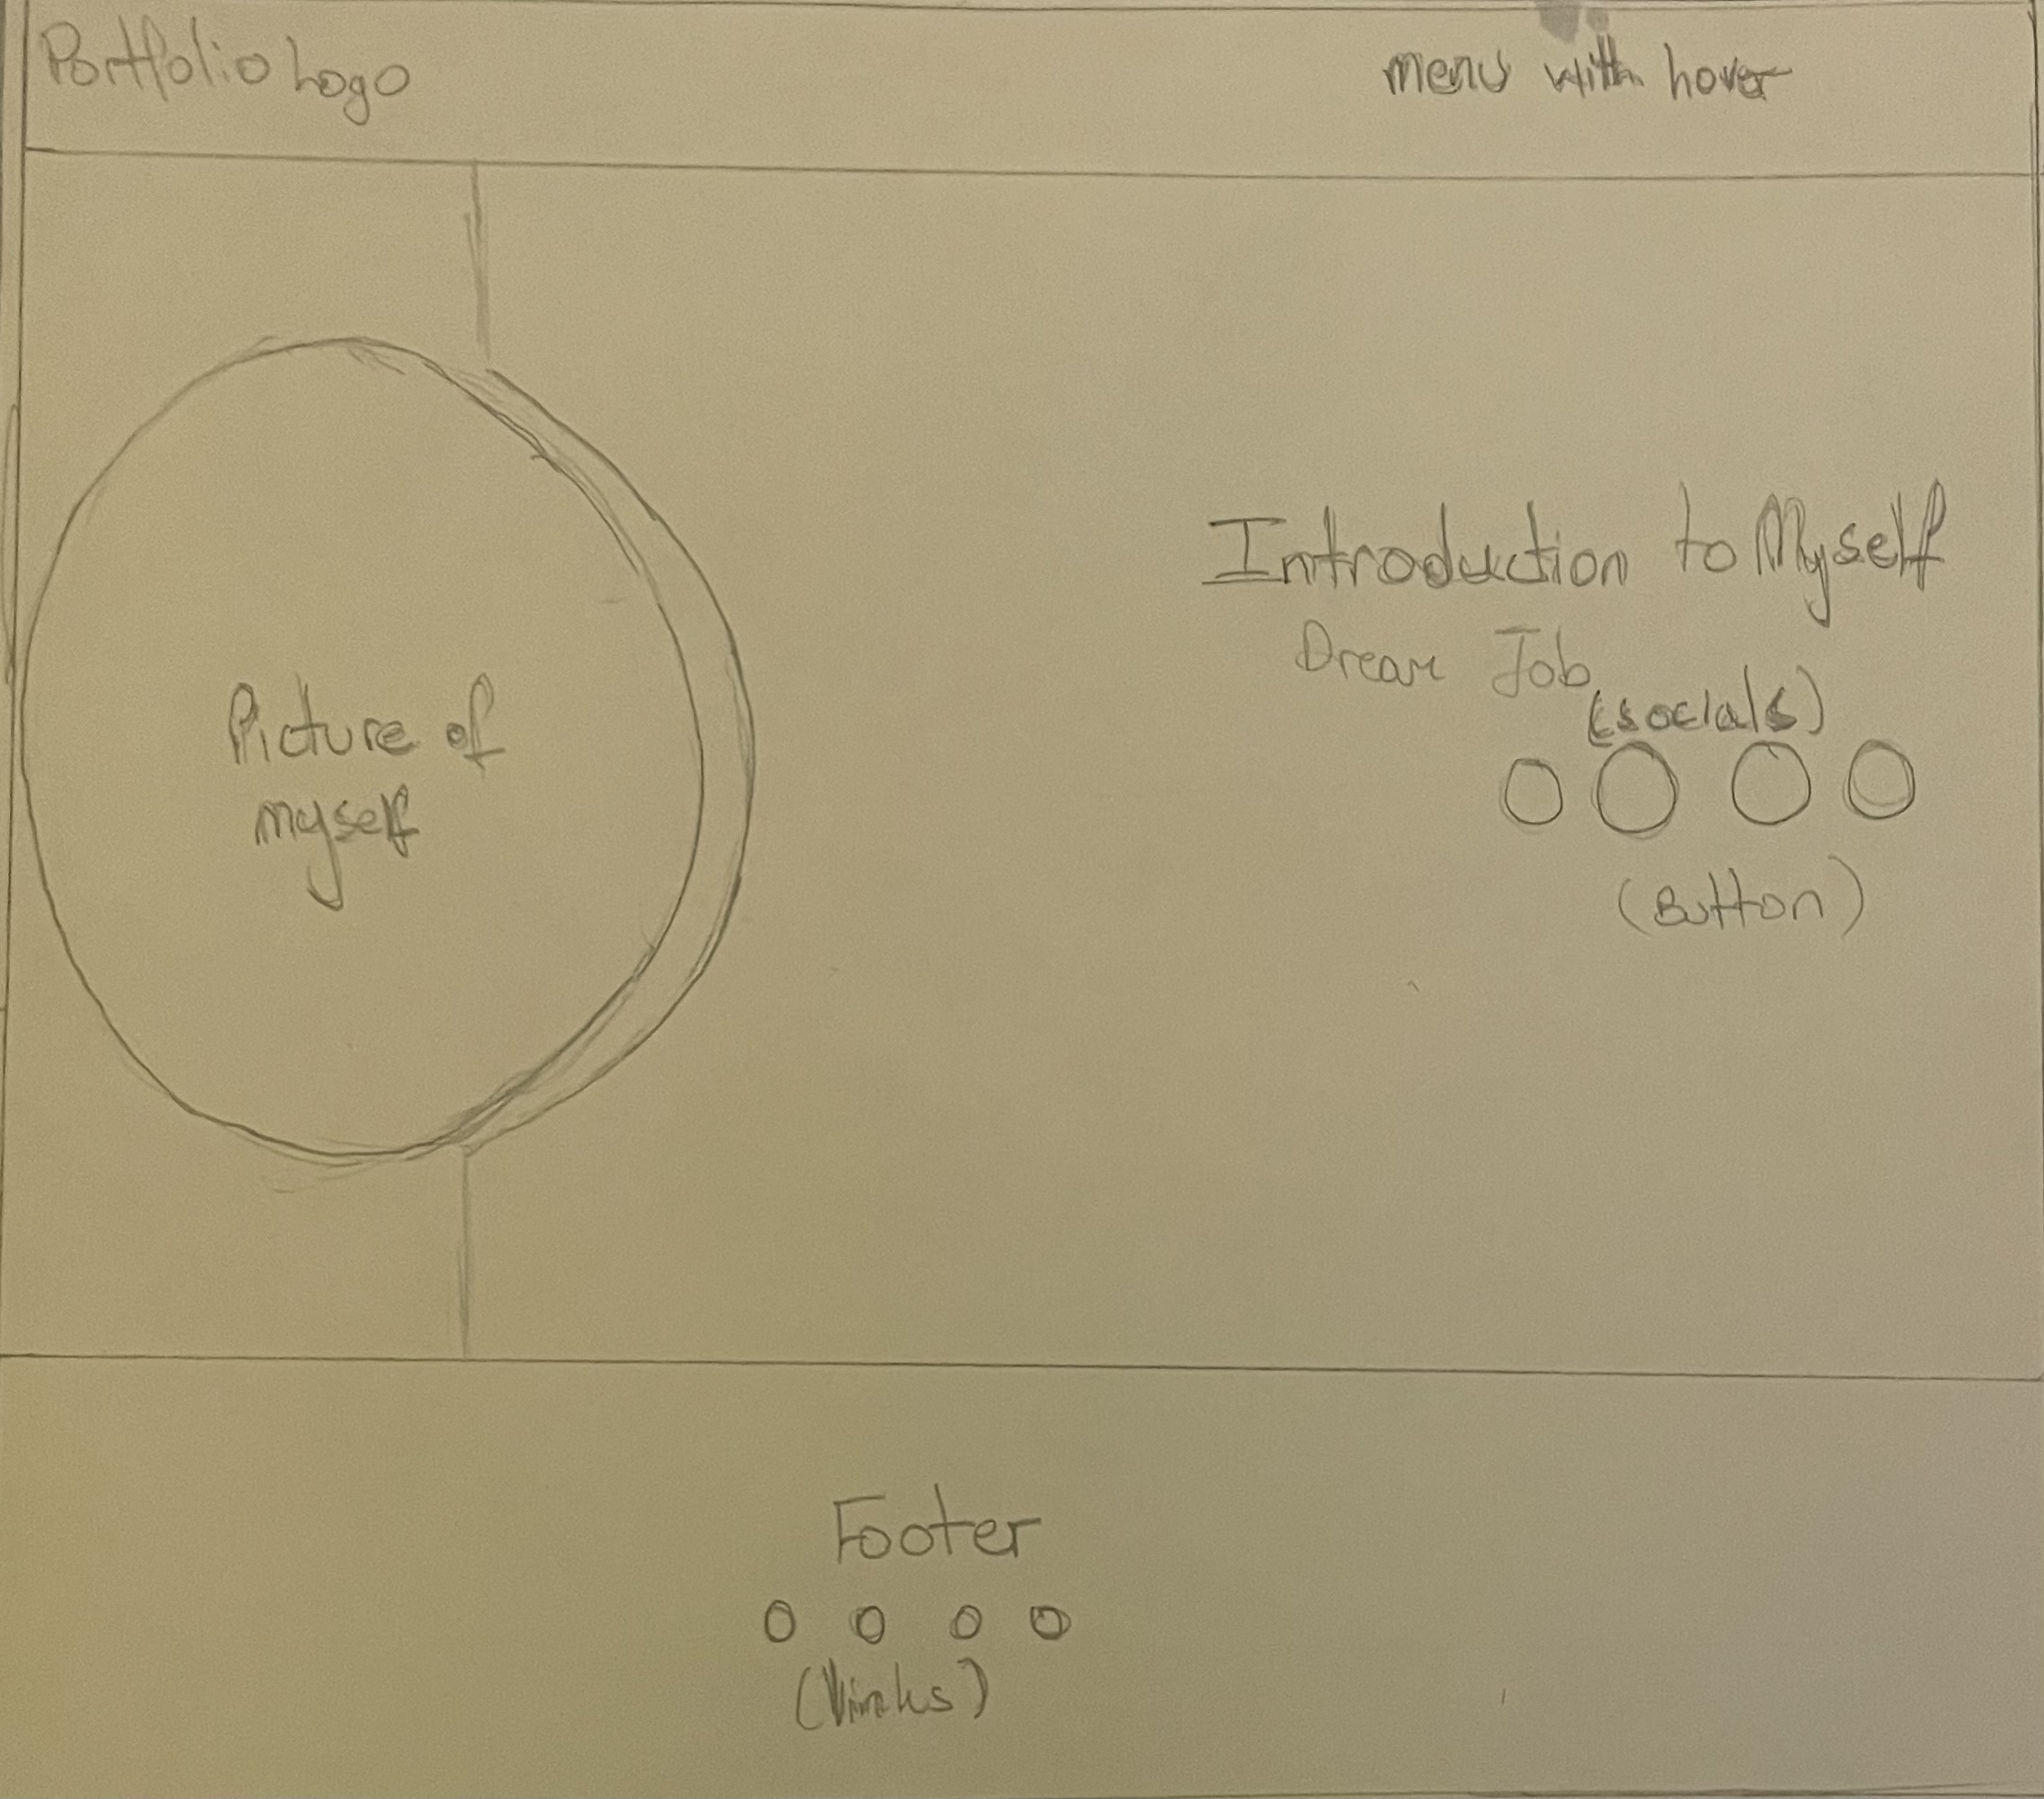 Portfolio Logo
menu with hover
Picture of
myself
Introduction to Myself
Dream Job
(socials)
(Button)
Footer
(links)